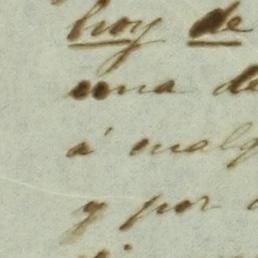 hoy de
una de
á cualq
y por